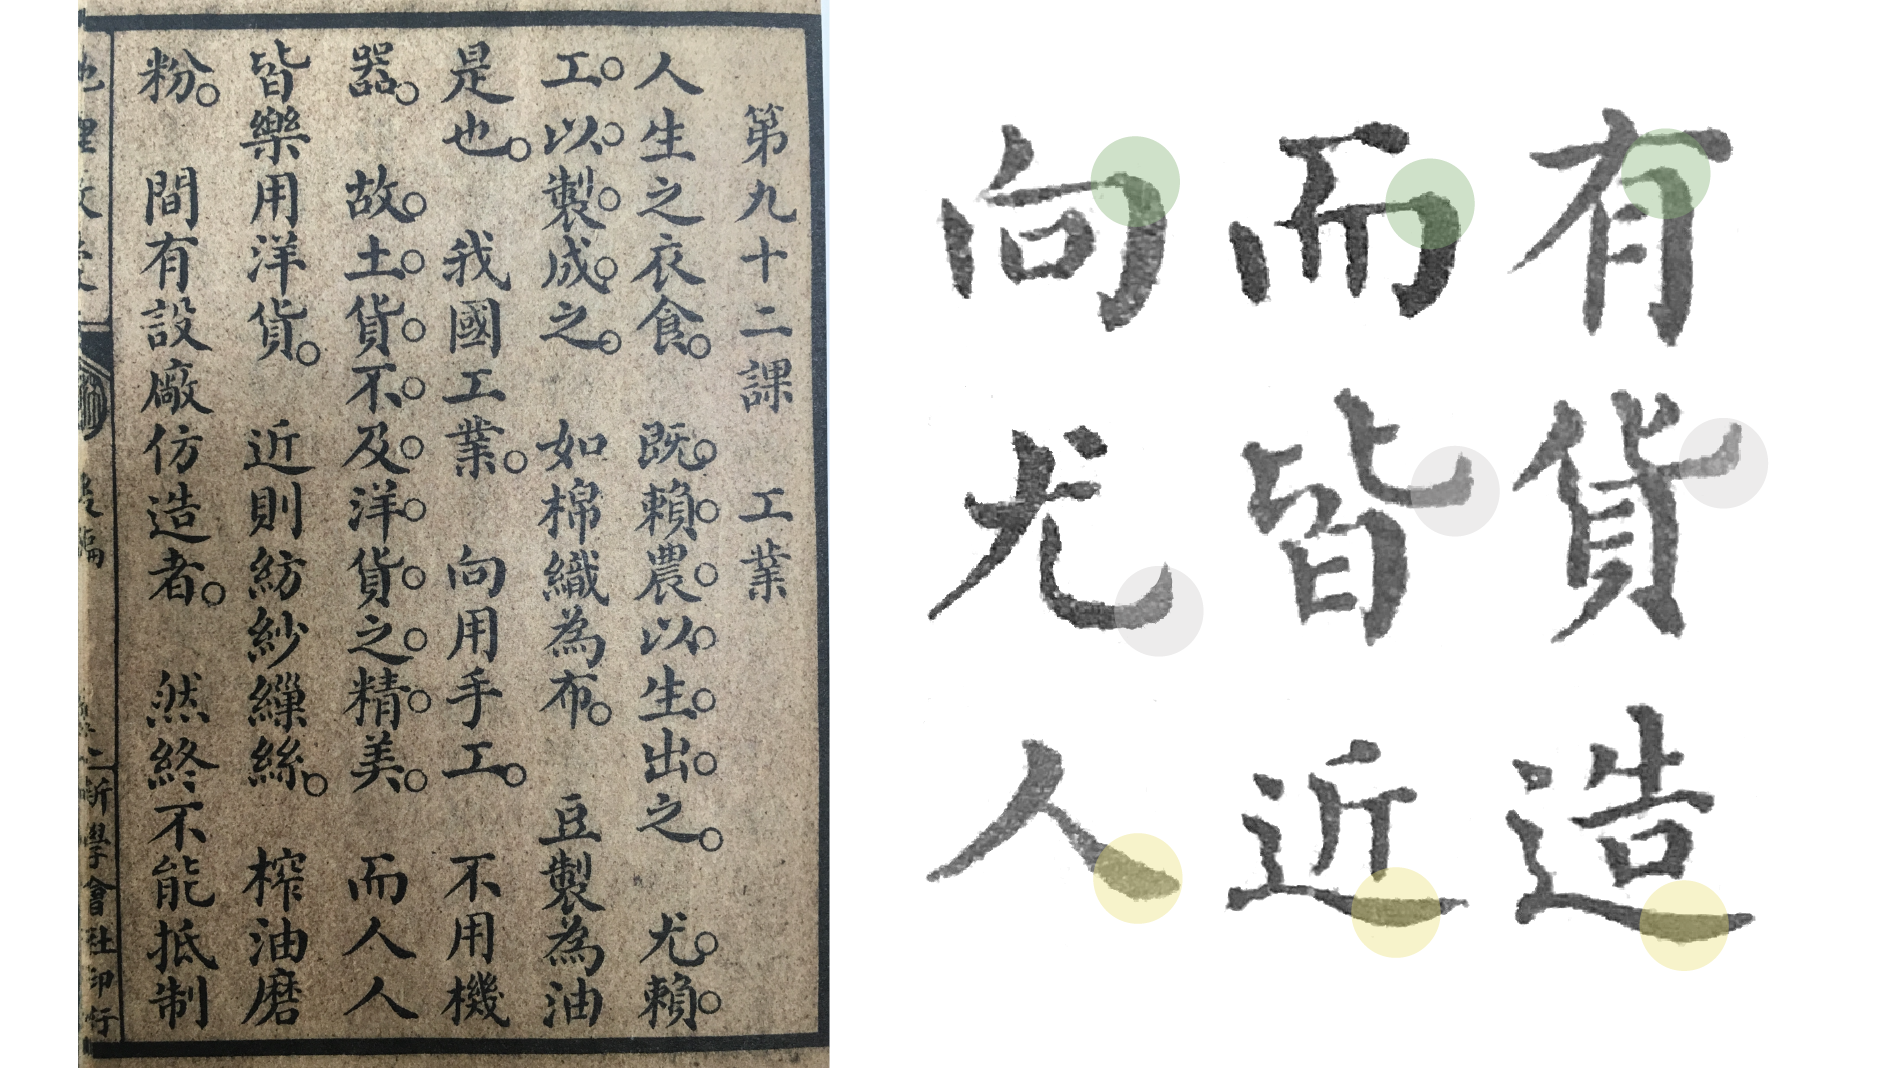 第九十二課 工業
人生之衣食。既賴農以生出之。尤賴
工以製成之。如棉織為布。豆製為油
是也。我國工業。向用手工。不用機
器。故土貨不及洋貨之精美。而人人
皆樂用洋貨。近則紡紗繅絲。榨油磨
粉。間有設廠仿造者。然終不能抵制
新學會社印行
向而有
尤皆貨
人近造